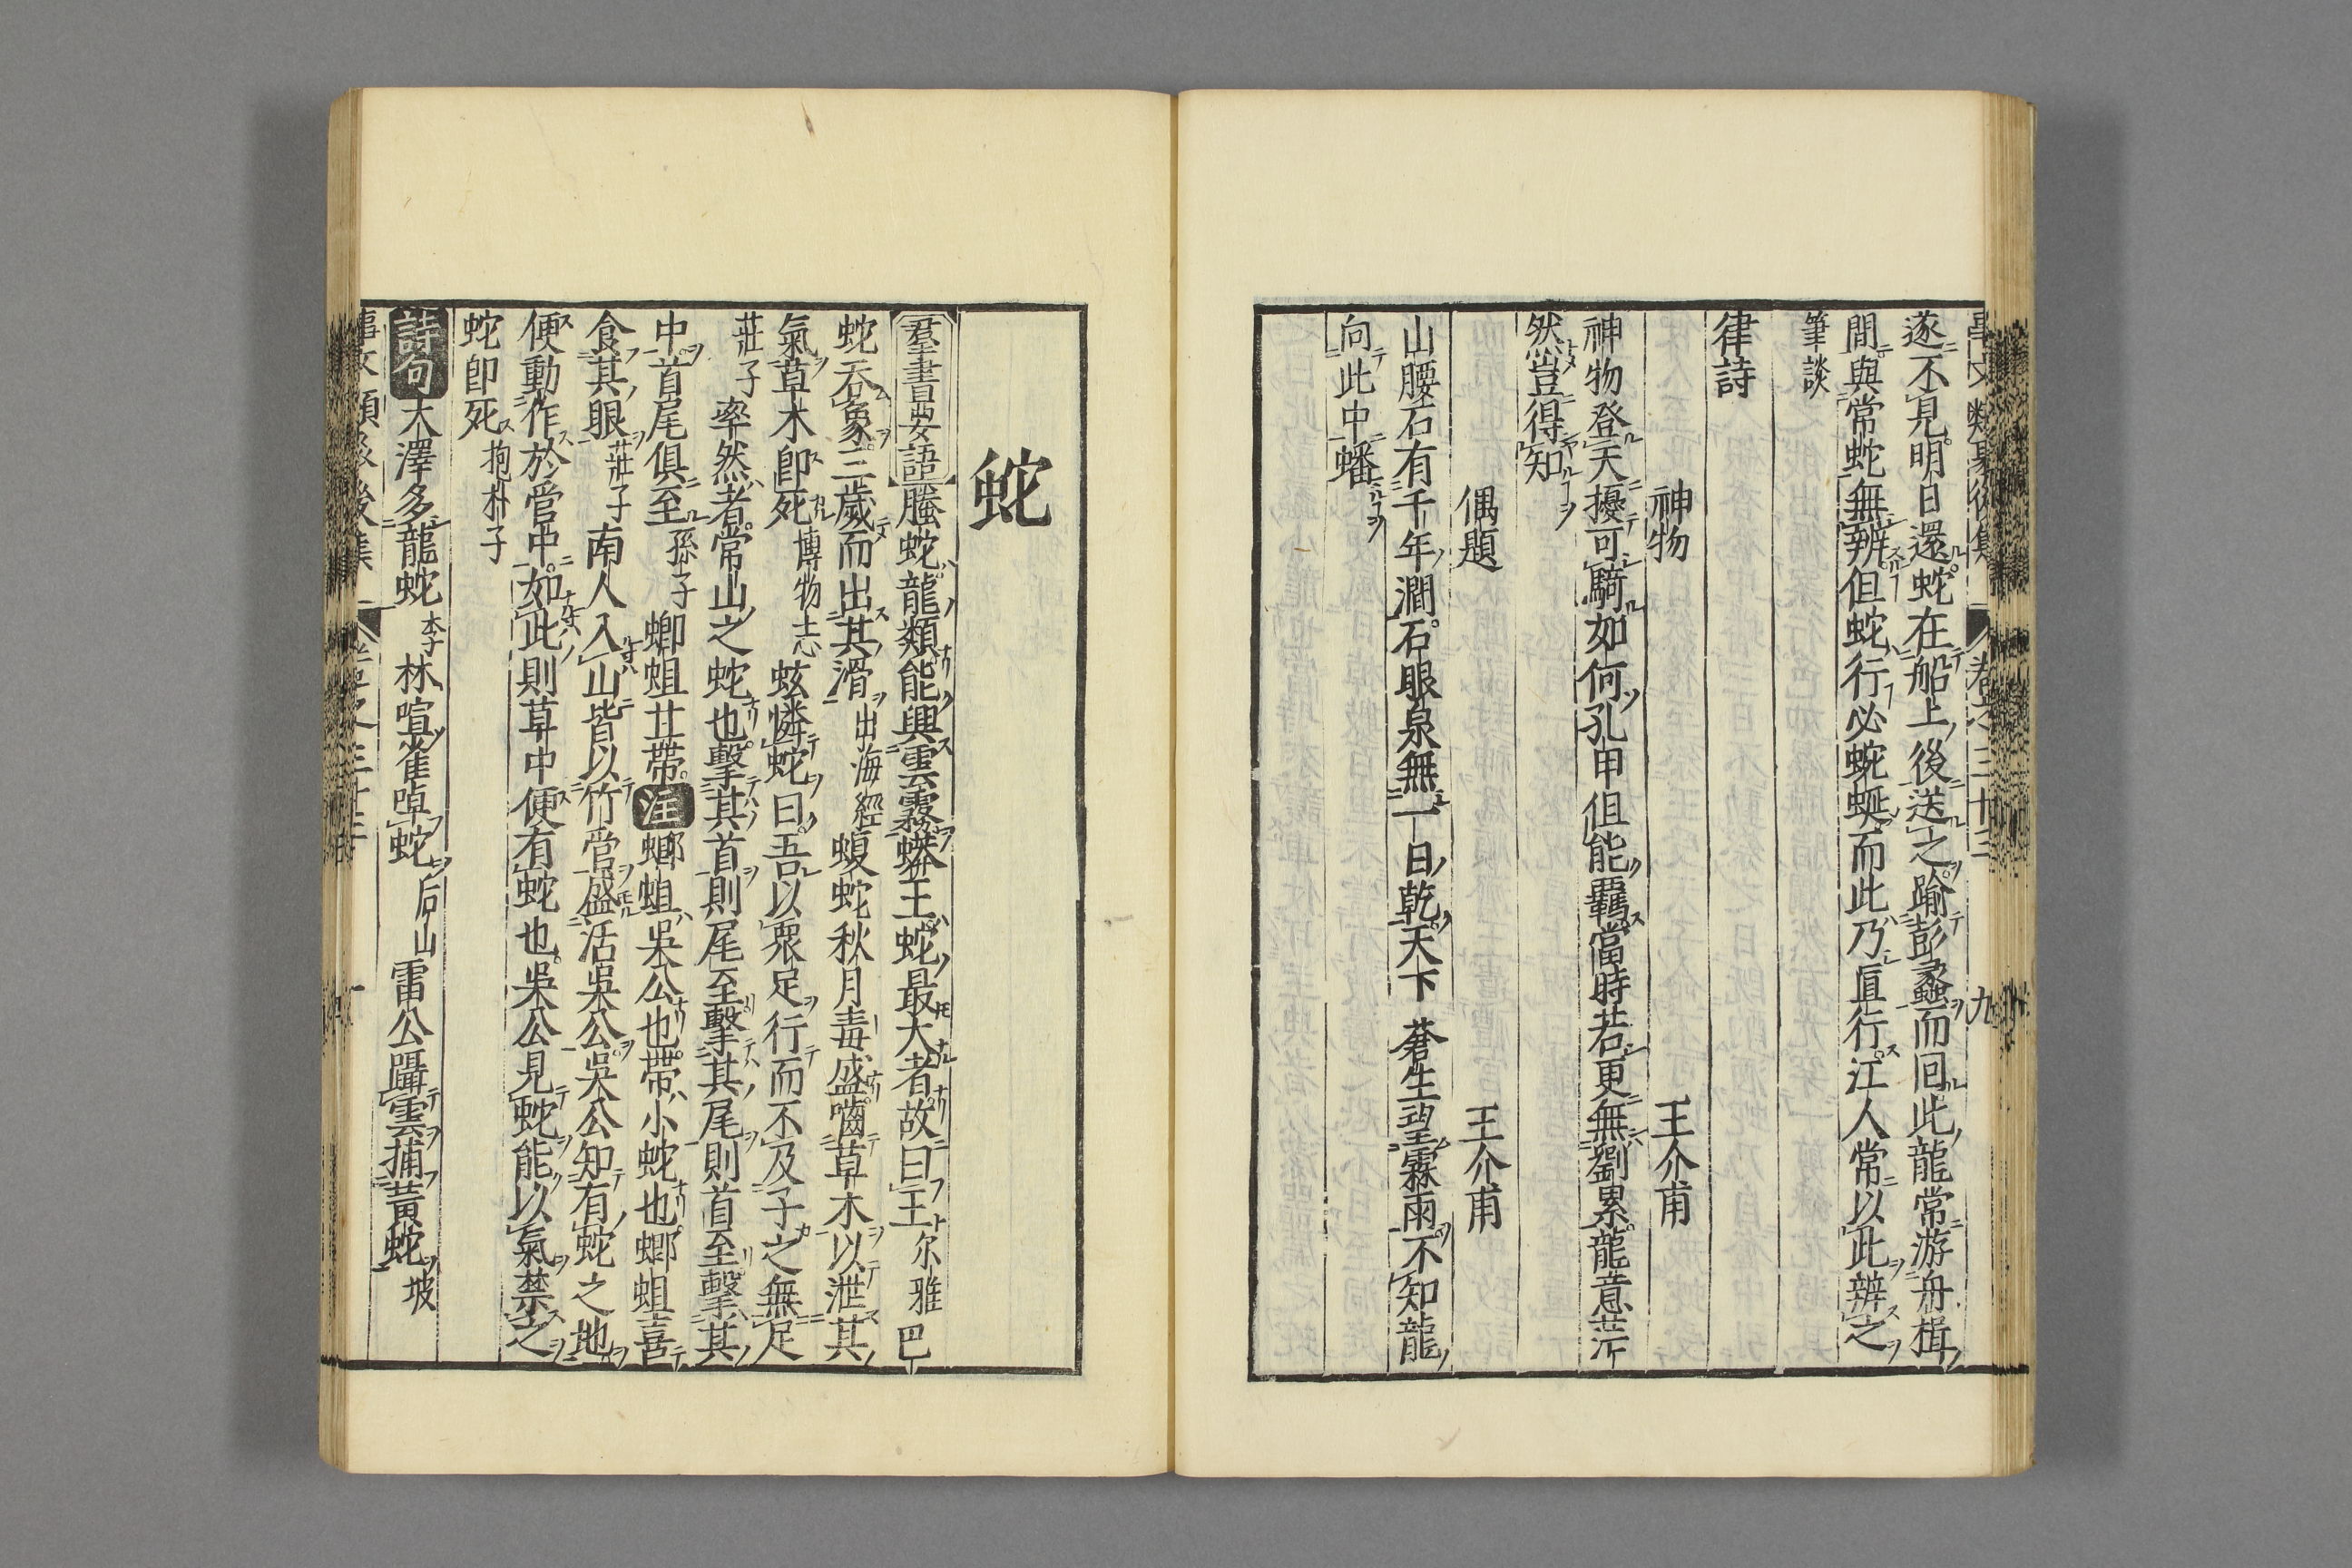 事文類聚後集 卷之三十三 九
遂不見明日還蛇在船上後送之踰彭蠡而回此龍常游舟楫
間與常蛇無辨但蛇行必蜿蜒而此乃直行江人常以此辨之
筆談
律詩
神物 王介甫
神物登天擾可騎如何孔甲但能羈當時若更無劉累龍意茫
然豈得知
偶題 王介甫
山腰石有千年澗石眼泉無一日乾天下蒼生望霖雨不知龍
向此中蟠
蛇
羣書要語 螣蛇龍類能興雲霧蟒王蛇最大者故曰王尔雅 巴
蛇吞象三歲而出其滑出海經 蝮蛇秋月毒盛嚙草木以泄其
氣草木卽死博物志 蚿憐蛇曰吾以衆足行而不及子之無足
莊子 率然者常山之蛇也擊其首則尾至擊其尾則首至擊其
中首尾俱至孫子 蝍蛆甘帶 注 蝍蛆吳公也帶小蛇也蝍蛆喜
食其眼莊子 南人入山皆以竹管盛活吳公吳公知有蛇之地
便動作於管中如此則草中便有蛇也吳公見蛇能以氣禁之
蛇卽死抱朴子
詩句 大澤多龍蛇李 林喧雀啅蛇后山 雷公躡雲捕黃蛇坡
事文類聚後集 卷之三十三